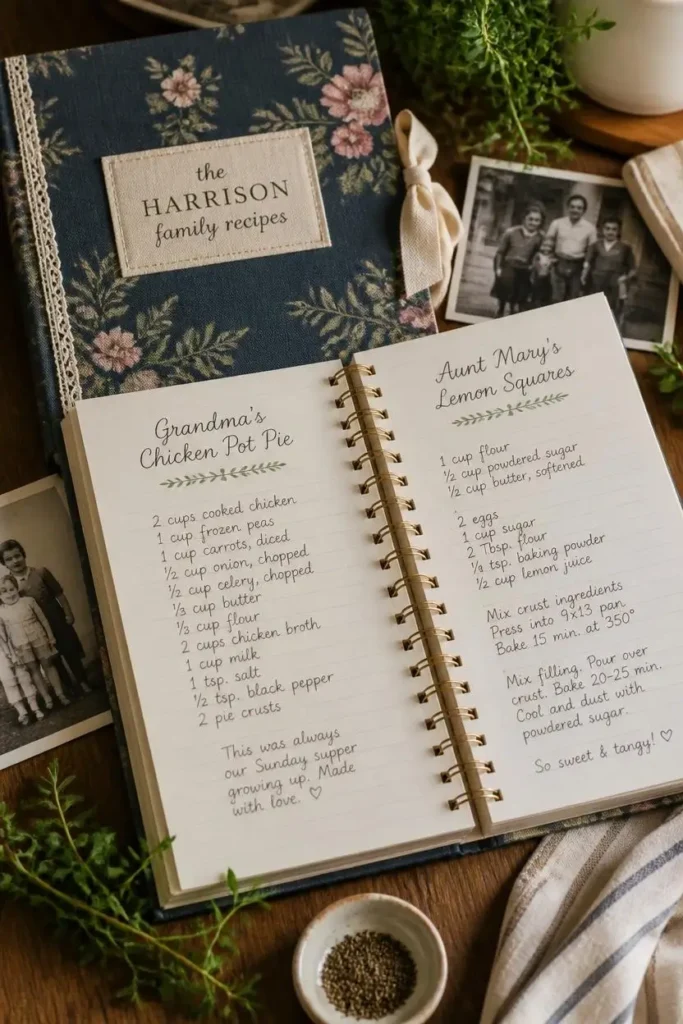 the
HARRISON
family recipes
Grandma's
Chicken Pot Pie
2 cups cooked chicken
1 cup frozen peas
1 cup carrots, diced
½ cup onion, chopped
½ cup celery, chopped
⅓ cup butter
⅓ cup flour
2 cups chicken broth
1 cup milk
1 tsp. salt
½ tsp. black pepper
2 pie crusts
This was always
our Sunday supper
growing up. Made
with love. ♡
Aunt Mary's
Lemon Squares
1 cup flour
½ cup powdered sugar
½ cup butter, softened
2 eggs
1 cup sugar
2 Tbsp. flour
tsp. baking powder
½ cup lemon juice
Mix crust ingredients
Press into 9x13 pan
Bake 15 min. at 350°
Mix filling. Pour over
crust. Bake 20-25 min.
Cool and dust with
powdered sugar.
So sweet & tangy! ♡